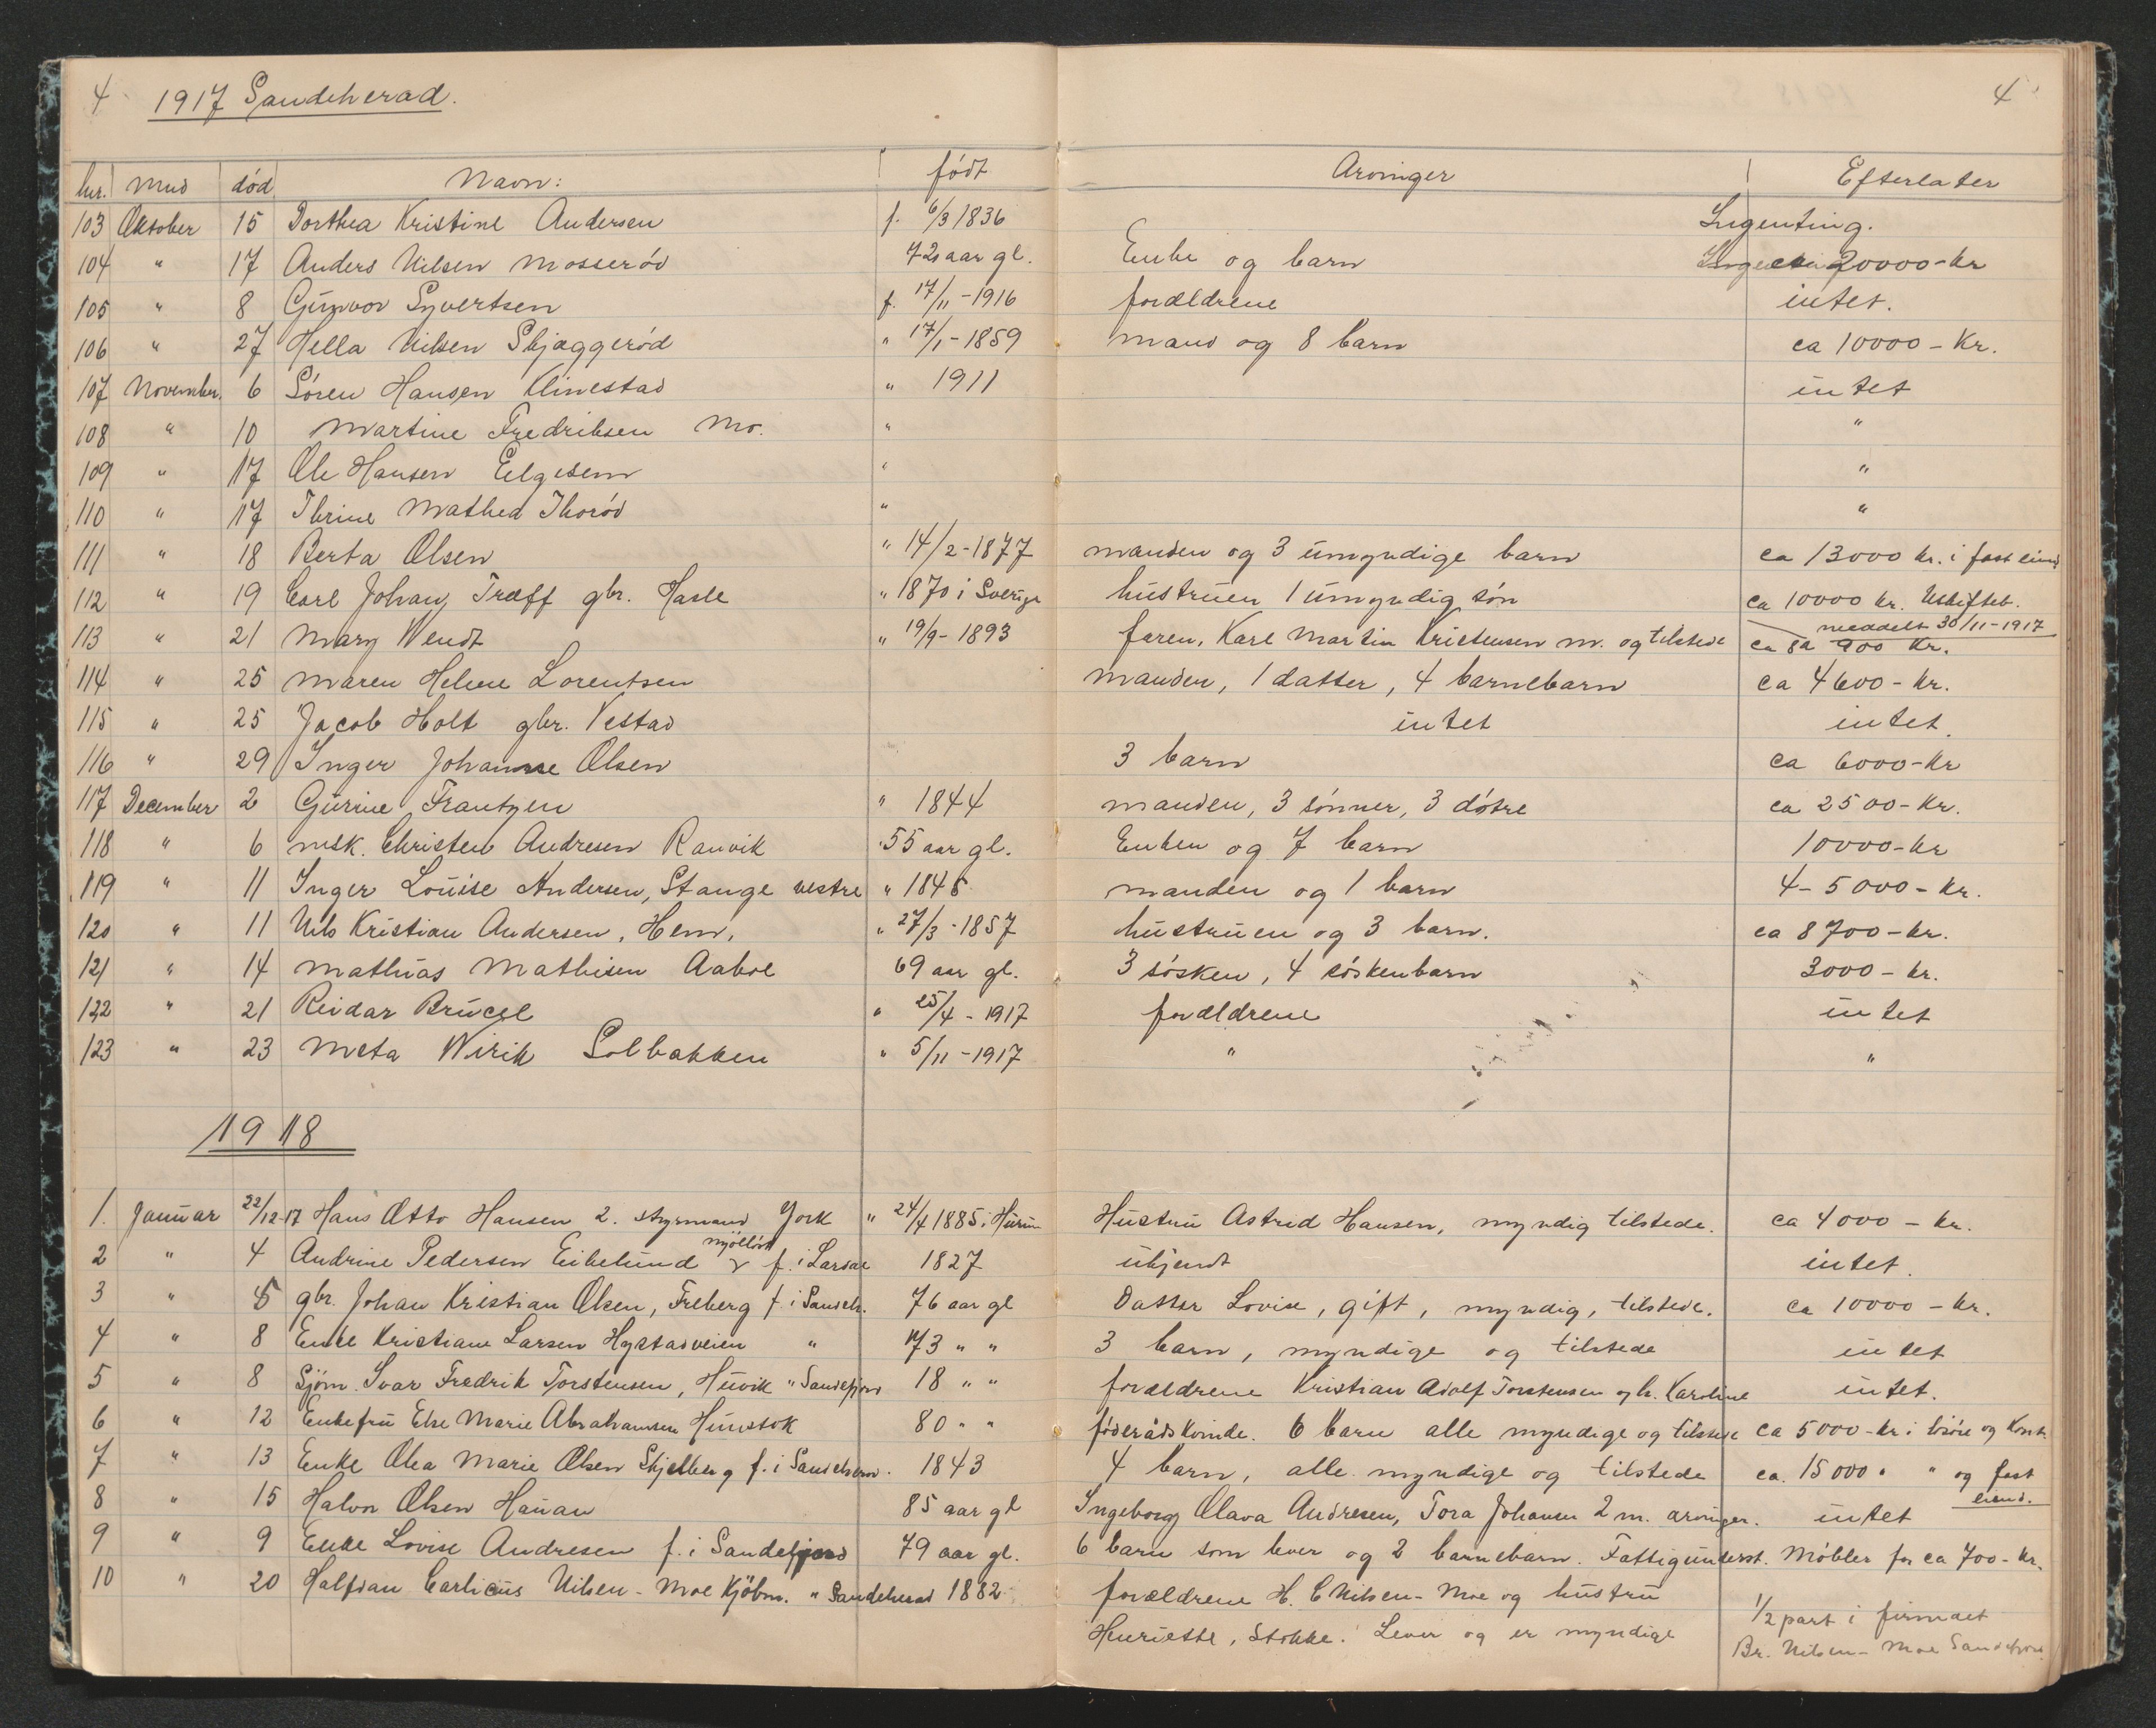 4 1917 Sandeherad. 4
lnr. Mnd død Navn: født Arvinger Efterlater
103 Oktober 15 Dorthea Kristine Andersen f. 6/3 1836 Ingenting.
104 " 17 Anders Nilsen Mosserød 72 aar gl. Enke og barn ca 20000 - kr
105 " 8 Gunvor Syvertsen f. 17/11 - 1916 forældrene intet.
106 " 27 Hella Nilsen Skjaggerød " 17/1 - 1859 mand og 8 barn ca 10000 - Kr.
107 November. 6 Søren Hansen Klinestad " 1911 intet
108 " 10 Martine Fredriksen Mo. " "
109 " 17 Ole Hansen Elgesem " "
110 " 17 Thrine Mathea Thorød " "
111 " 18 Berta Olsen " 14/2 - 1877 manden og 3 umyndige barn ca 13000 kr. i fast eiend
112 " 19 Carl Johan Træff gbr. Hasle " 1870 i Sverige hustruen 1 umyndig søn ca 10000 kr. Uskifteb.
meddelt 30/11 - 1917
113 " 21 Mary Wendt " 19/9 - 1893 faren, Karl Martin Kristensen m. og tilstede ca 8 a 900 Kr.
114 " 25 Maren Helene Lorentsen manden, 1 datter, 4 barnebarn ca 4600 - kr.
115 " 25 Jacob Holt gbr. Vestad intet intet.
116 " 29 Inger Johanne Olsen 3 barn ca 6000 - kr
117 December 2 Gurine Frantzen " 1844 manden, 3 sønner, 3 døtre ca 2500 - Kr.
118 " 6 msk. Christen Andresen Ranvik 55 aar gl. Enken og 7 barn 10000 - kr
119 " 11 Inger Louise Andersen, Stange vestre " 1846 manden og 1 barn 4 - 5000 - kr.
120 " 11 Nils Kristian Andersen, Hem, " 27/3 - 1857 hustruen og 3 barn. ca 8700 - kr.
121 " 14 Mathias Mathisen Aabol 69 aar gl. 3 søsken, 4 søskenbarn 3000 - kr.
122 " 21 Reidar Brucel " 25/4 - 1917 forældrene intet
123 " 23 Meta Wirik Solbakken " 5/11 - 1917 " "
1918
1. Januar 22/12-17 Hans Otto Hansen 2. styrmand York " 24/4 1885 i Hurum Hustru Astrid Hansen, myndig tilstede. ca 4000 - kr.
2 " 4 Andrine Pedersen Eikelund f. i Lardal 1827 ukjendt intet.
3 " 5 gbr. Johan Kristian Olsen, Freberg f. i Sandeh. 76 aar gl Datter Lovise, gift, myndig, tilstede. ca 10000 - kr.
4 " 8 Enke Kristiane Larsen Hystadveien " 73 " " 3 barn, myndige og tilstede intet
5 " 8 Sjøm. Ivar Fredrik Torstensen, Huvik " Sandefjord 18 " " forældrene Kristian Adolf Torstensen og h. Karoline intet.
6 " 12 Enkefru Else Marie Abrahamsen Hunstok 80 " " føderådskvinde. 6 barn alle myndige og tilstede ca 5000 - kr. i løsøre og Kont.
7 " 13 Enke Olea Marie Olsen Skjelberg f. i Sandeherred. 1843 4 barn, alle myndige og tilstede ca. 15000 " " og fast
eiend.
8 " 15 Halvor Olsen Hauan 85 aar gl Ingeborg Olava Andresen, Tora Johansen 2 m. arvinger. intet
9 " 9 Enke Lovise Andresen f. i Sandefjord 79 aar gl. 6 barn som lever og 2 barnebarn. Fattigunderst. Møbler for ca 700 - kr.
10 " 20 Halfdan Carlicus Nilsen - Moe Kjøbm. " Sandeherad 1882 forældrene H. C Nilsen - Moe og hustru 1/2 part i firmaet
Henriette, Stokke. Lever og er myndige Br. Nilsen - Moe Sandefjord